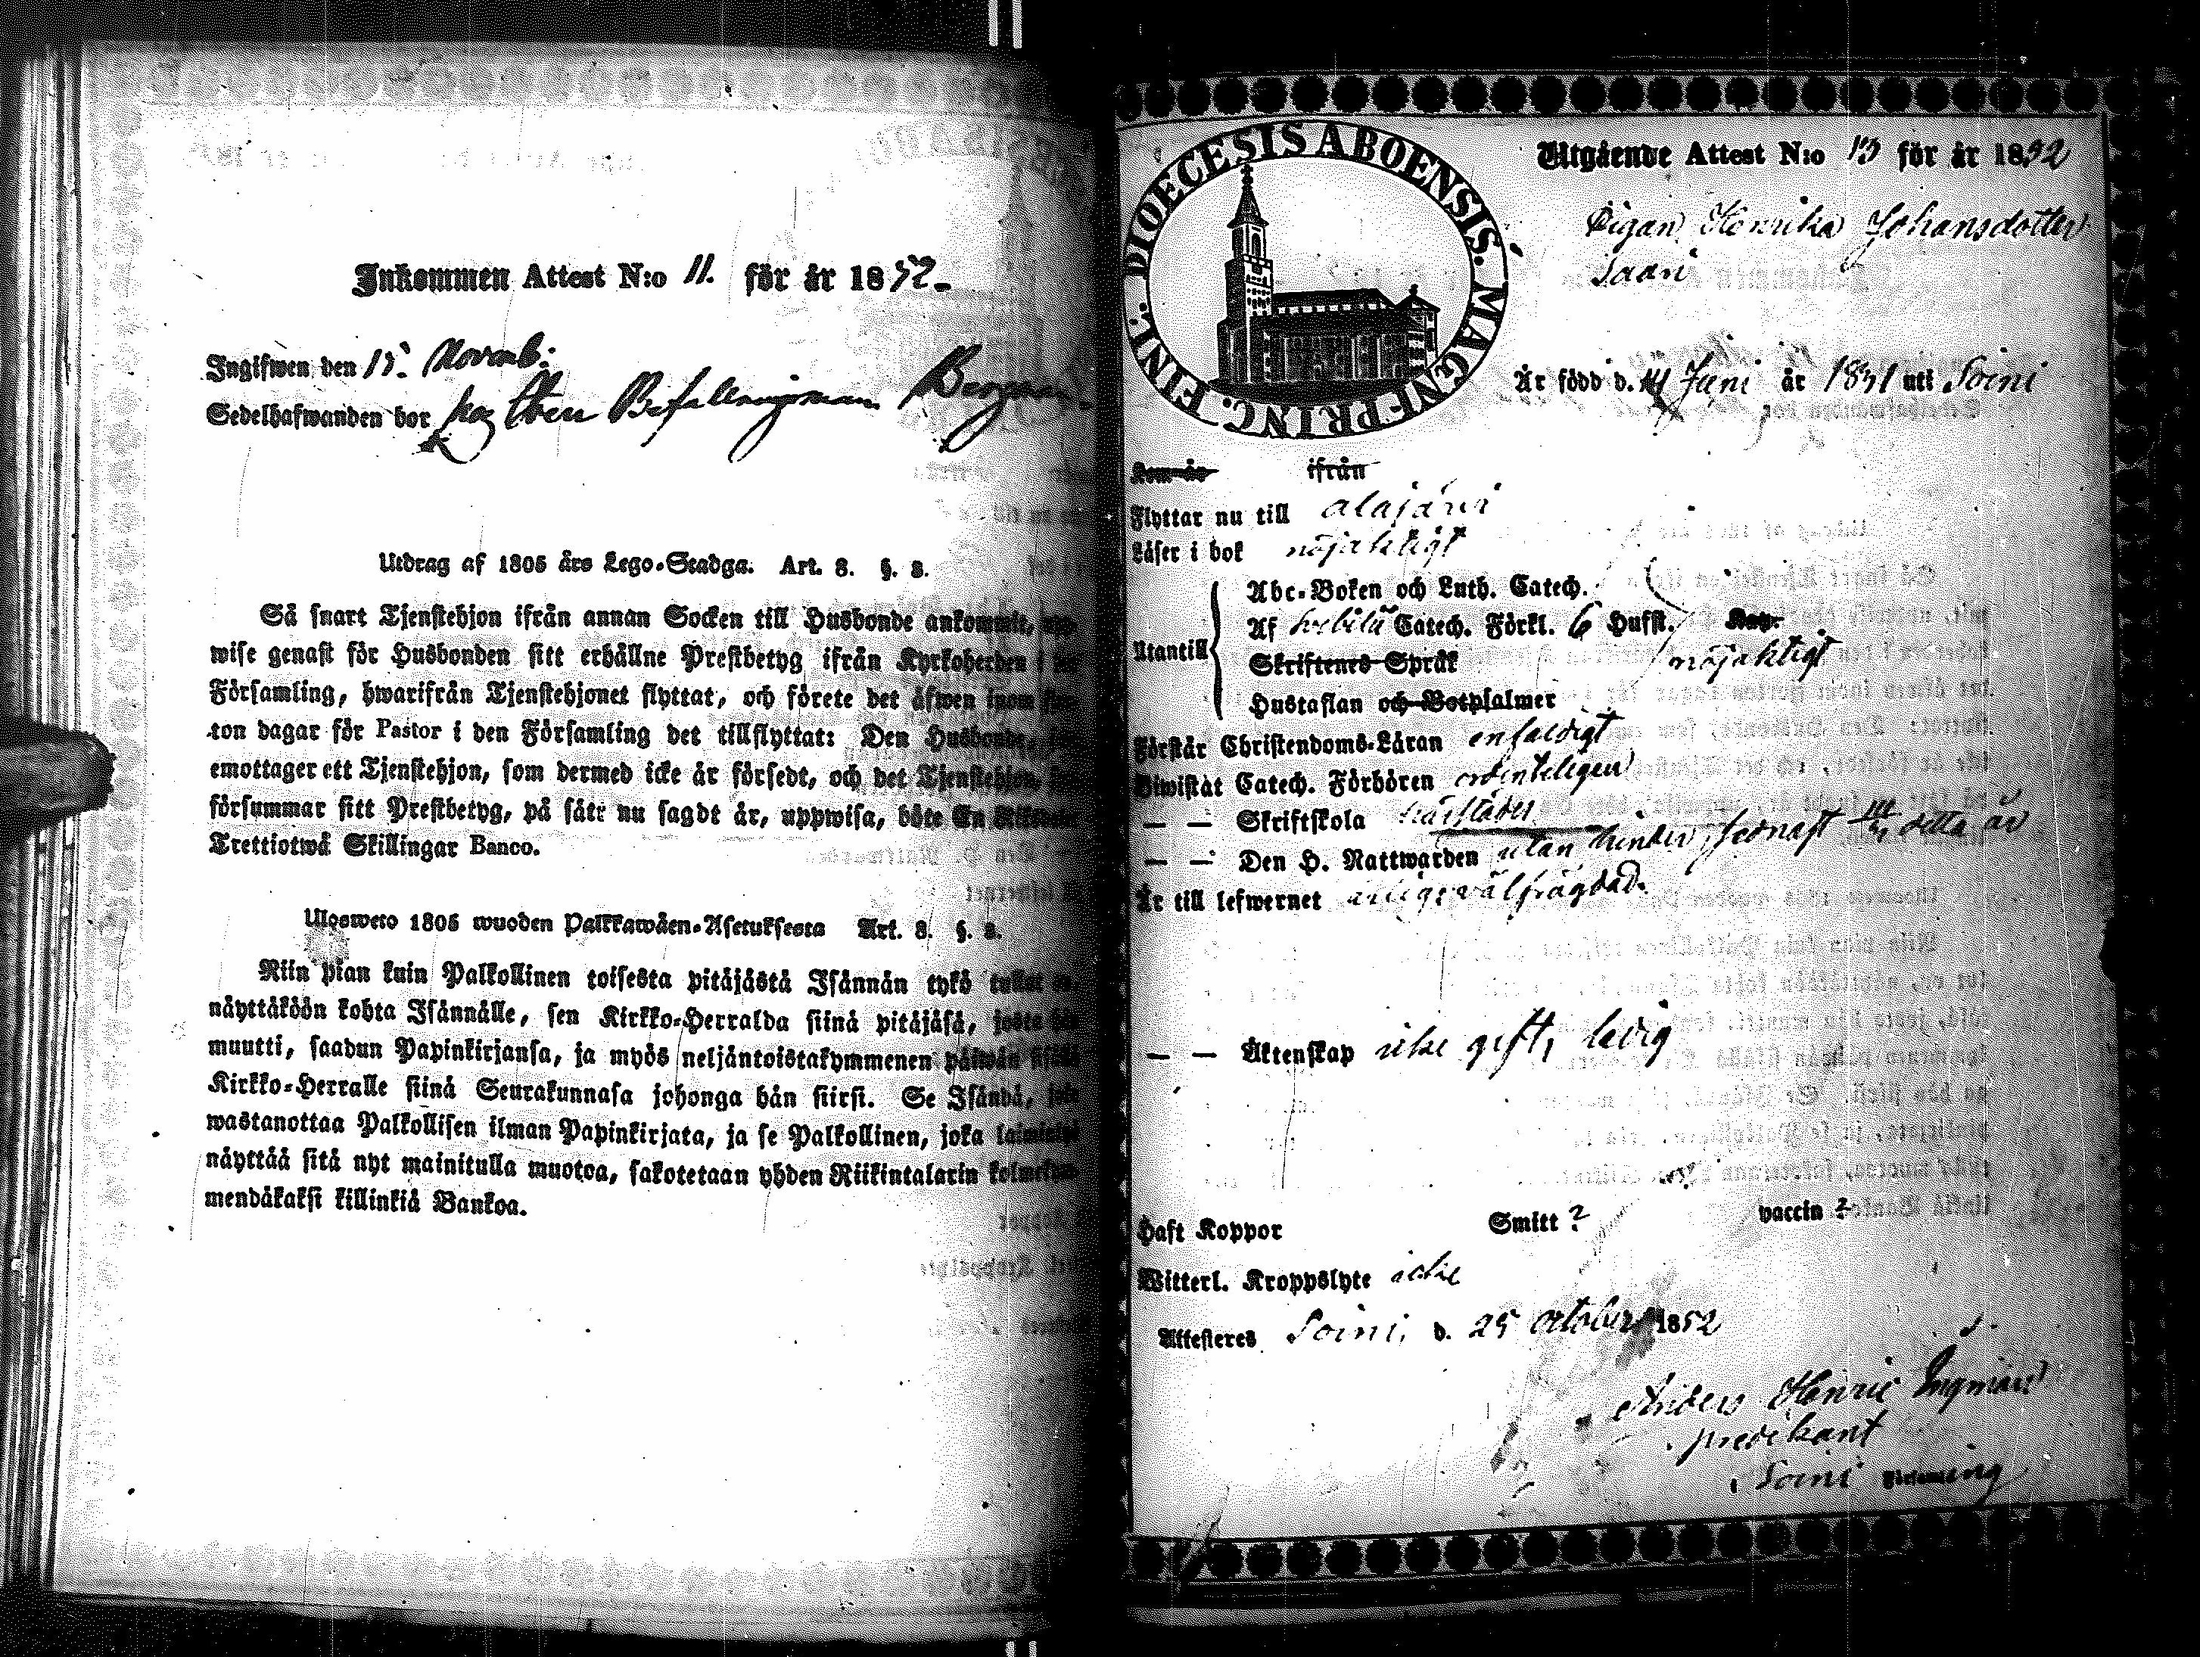 Inkommen Attest N:o 11. för år 1852.
Ingifwen den 15. Novemb:
Sedelhafwanden bor hos Befallningsman Bergman.
Utdrag af 1805 års Lego-Stadga. Art. 8. §. 8.
Så snart Tjenstehjon ifrån annan Socken till Husbonde ankommit,
wise genast för Husbonden sitt erhållne Prestbetyg ifrån Kyrkoherden i
Församling, hwarifrån Tjenstehjonet flyttat, och förete det äfwen inom
ton dagar för Pastor i den Församling det tillflyttat: Den Husbonde,
emottager ett Tjenstehjon, som dermed icke är försedt, och det Tjenstehjon,
försummar sitt Prestbetyg, på sätt nu sagdt är, uppwisa, böte En
Trettiotwå Skillingar Banco.
Ulosweto 1805 wuoden Palkkawäen-Asetuksesta Art. 8. §. 8.
Niin pian kuin Palkollinen toisesta pitäjästä Isännän tykö tullut
näyttäköön kohta Isännälle, sen Kirkko-Herralda siinä pitäjäsä, josta
muutti, saadun Papinkirjansa, ja myös neljäntoistakymmenen päiwän
Kirkko-Herralle siinä Seurakunnasa johonga hän siirsi. Se Isändä,
wastanottaa Palkollisen ilman Papinkirjata, ja se Palkollinen, joka
näyttää sitä nyt mainitulla muotoa, sakotetaan yhden Riikintalarin
mendäkaksi killinkiä Bankoa.
DIOECESIS ABOENSIS. MAGNI PRINC. FINL.
Utgående Attest N:o 13 för år 1852
Pigan Henrika Johansdotter
Saari
Är född d. 14 Juni år 1831 uti Soini
ifrån
Flyttar nu till alajärvi
Läser i bok nöjaktigt
Abc-Boken och Luth. Catech.
Utantill Af Svebilii Catech. Förkl. 6 Hufst.
Skriftenes Språk nöjaktigt
Hustaflan och Botpsalmer
Förstår Christendoms-Läran enfaldigt
Biwistat Catech. Förhören ordenteligen
— — Skriftskola härstädes
— — Den H. Nattwarden utan hinder, sednast detta år
Är till lefwernet ärlig, välfrägdad.
— — Äktenskap icke gift, ledig
Haft Koppor Smitt ? vaccin ?
Witterl. Kroppslyte icke
Attesteres Soini, d. 25 October 1852
Anders Henric Ingman
predikant
Soini Församling